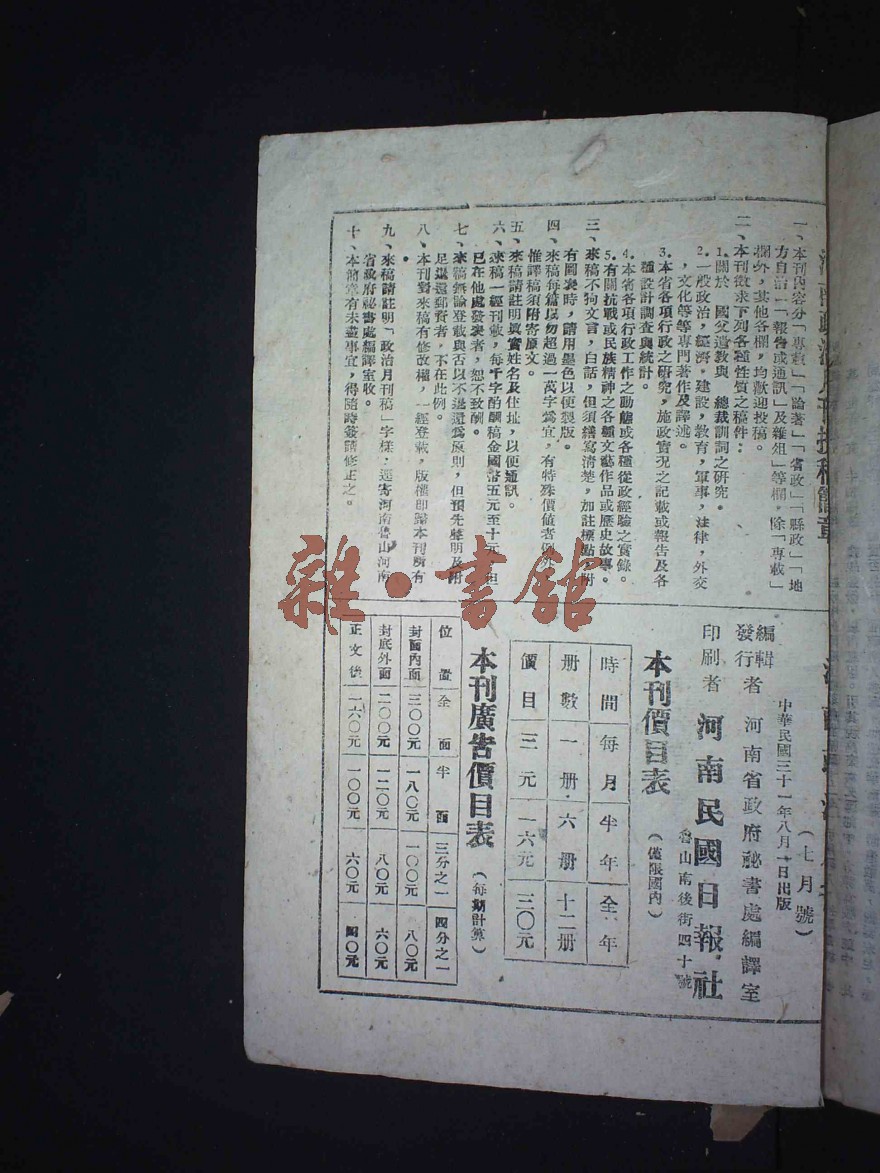 河南政治月刊投稿簡章
一、本刊內容分「專載」「論著」「省政」「縣政」「地
方自治」「報告或通訊」及雜俎」等欄,除「專載」
欄外,其他各欄,均歡迎投稿。
二、本刊徵求下列各種性質之稿件:
1.關於 國父遺敎與 總裁訓詞之硏究。
2.一般政治,經濟,建設,敎育,軍事,法律,外交
,文化等等專門著作及譯述。
3.本省各項行政之硏究,施政實况之記載或報告及各
種設計調查與統計。
4.本省各項行政工作之動態或各種從政經驗之實錄。
5.有關抗戰或民族精神之各種文藝作品或歷史故事。
三、來稿不狗文言,白話,但須繕寫清楚,加註標點,附
有圖表時,請用墨色以便製版。
四、來稿每篇以勿超過一萬字爲宜,有特殊價値者例外
惟譯稿須附寄原文。
五、來稿請註明眞實姓名及住址,以便通訊。
六、來稿一經刊載,每千字酌酬稿金國幣五元至十元,但
已在他處發表者,恕不致酬。
七、來稿無論登載與否以不退還爲原則,但預先聲明及附
足退還郵費者,不在此例。
八、本刊對來稿有修改權,一經登載,版權即歸本刊所有
。
九、來稿請註明「政治月刊稿」字樣,逕寄河南魯山河南
省政府祕書處編譯室收。
十、本簡章有未盡事宜,得隨時簽請修正之。
(七月號)
中華民國三十一年八月一日出版
編輯
發行者 河南省政府祕書處編譯室
印刷者 河南民國日報社
魯山南後街四十號
本刊價目表 (僅限國內)
時間 每月 半年 全年
册數 一册 六册 十二册
價目 三元 一六元 三〇元
本刊廣告價目表 (每期計算)
位置 全面 半面 三分之一 四分之一
封面內面 三〇〇元 一八〇元 一〇〇元 八〇元
封底外面 二〇〇元 一二〇元 八〇元 六〇元
正文後 一六〇元 一〇〇元 六〇元 四〇元
雜·書館